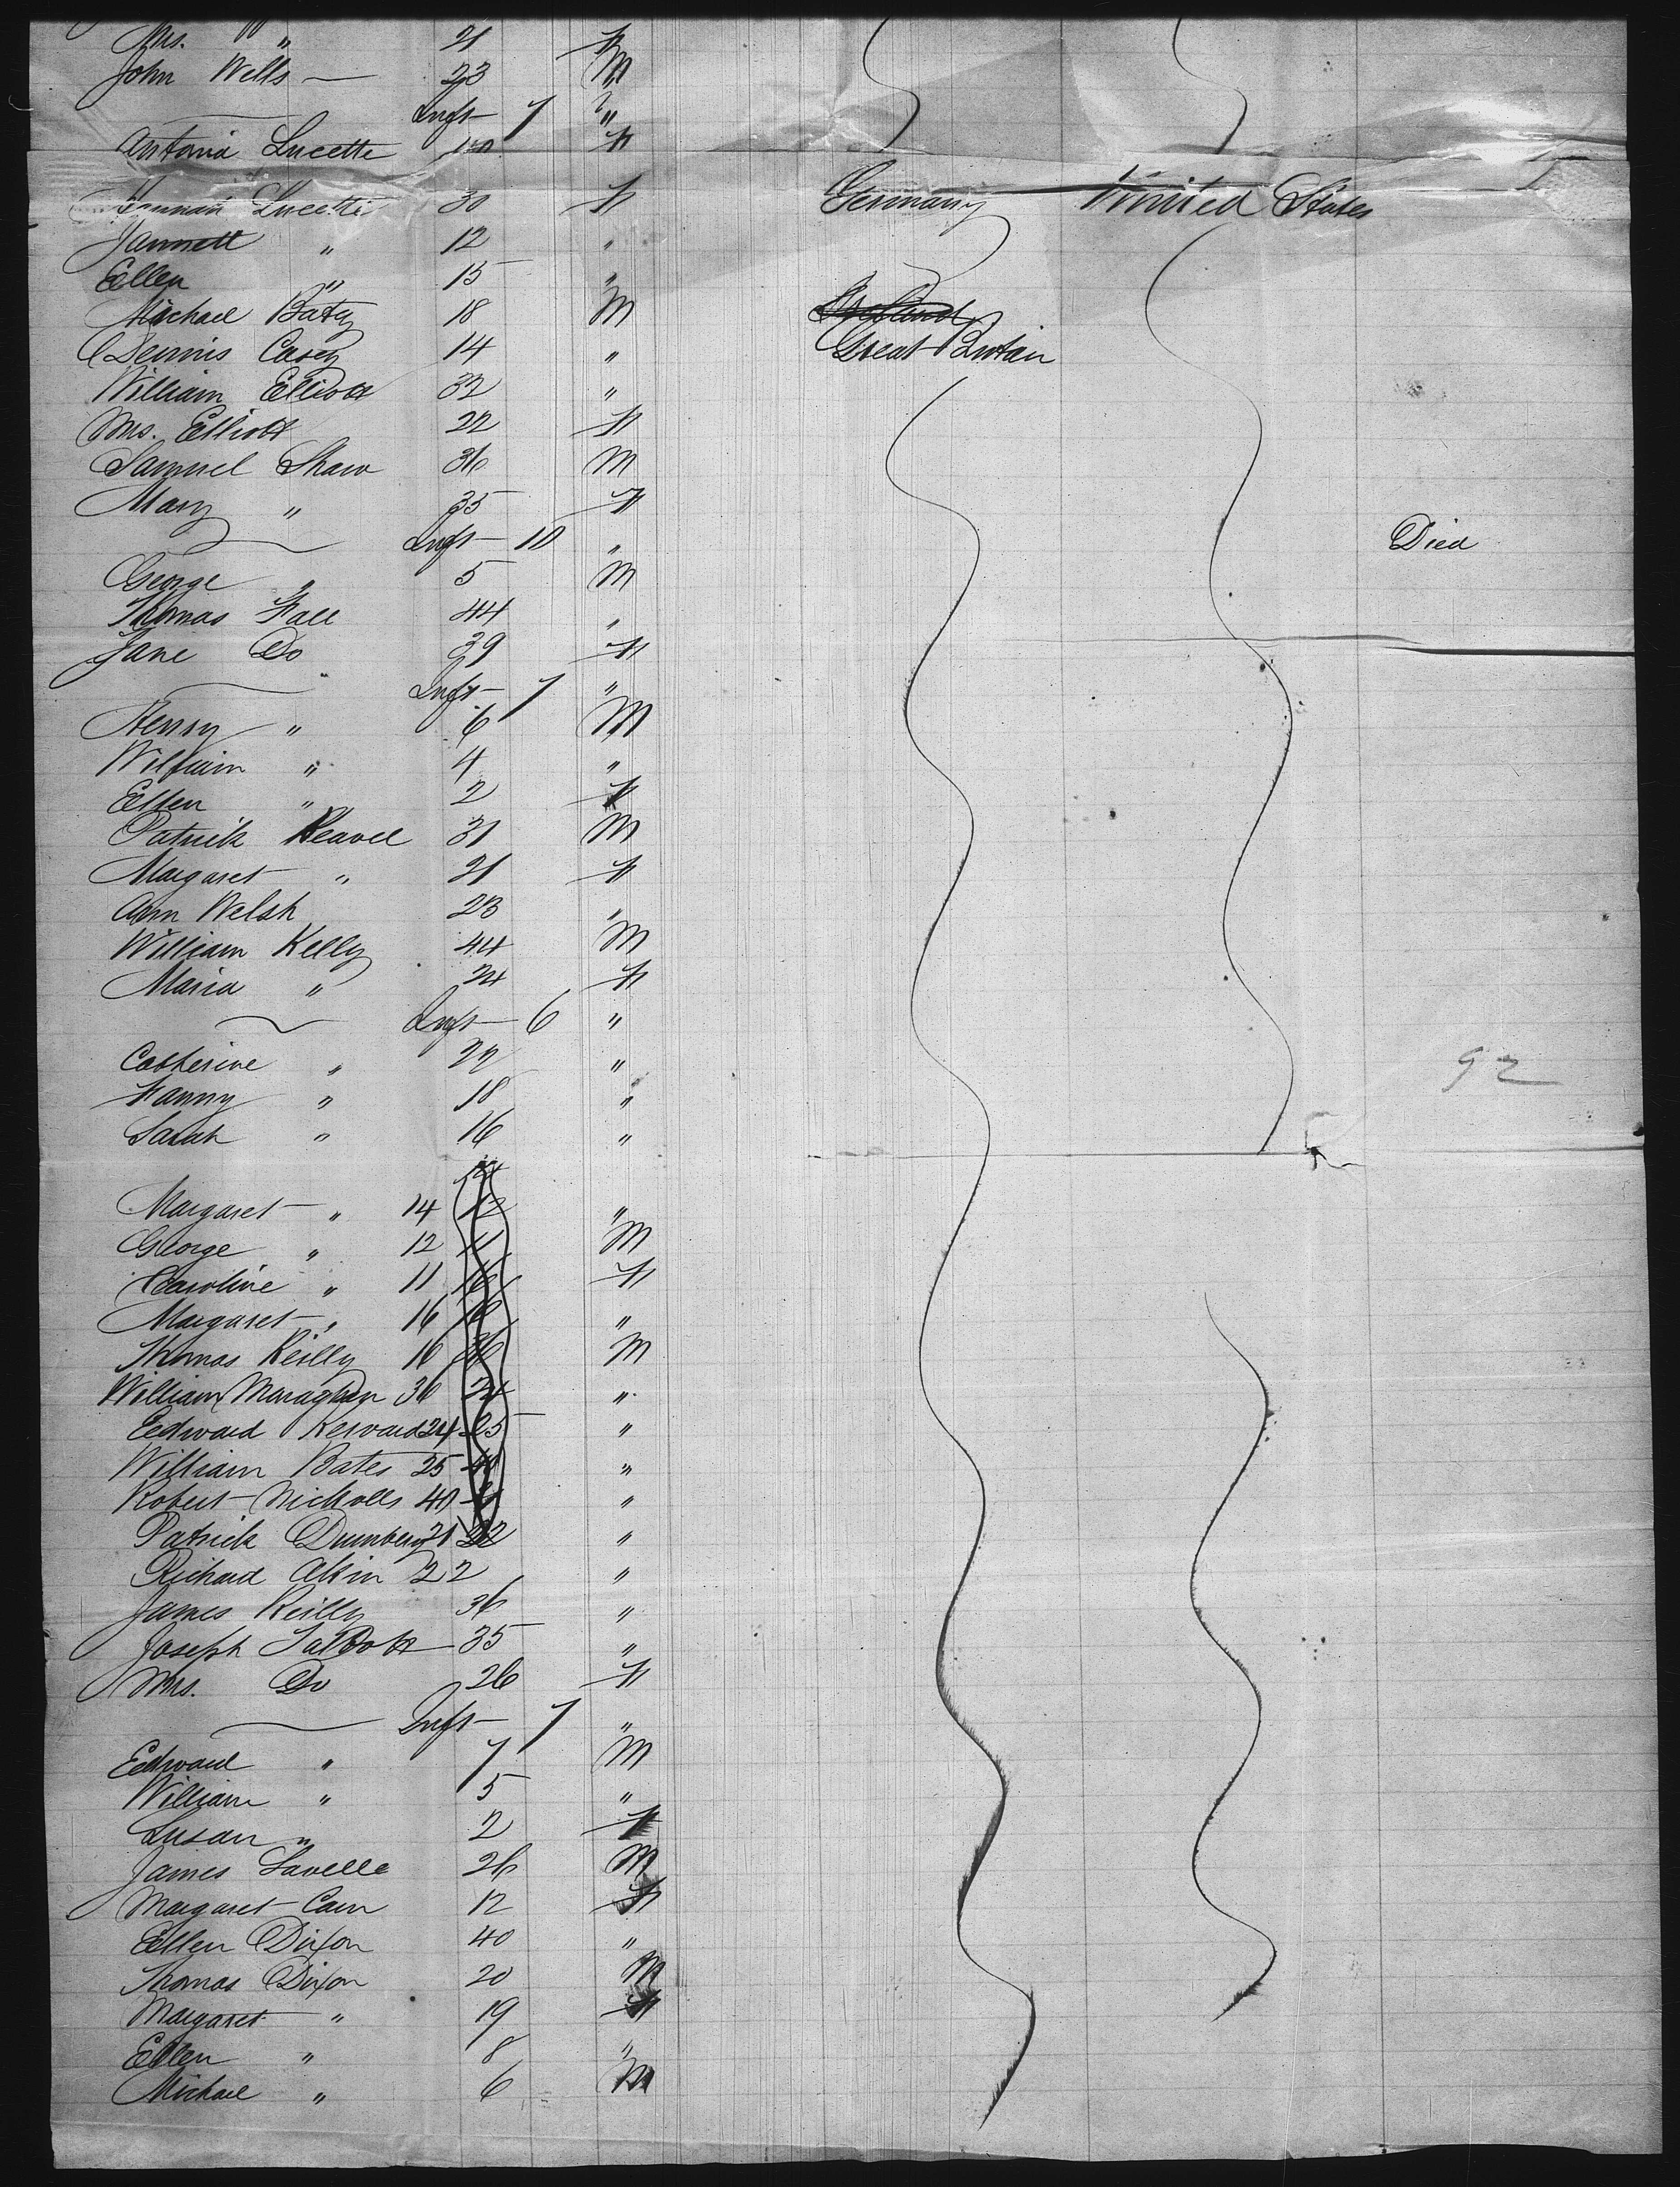 Mrs. " 21 F
John Wells — 23 M
Inft 7 "
Antonia Lucette 10 F
Hannah Lucette 30 F Germany United States
Jannett " 12 "
Ellen " 15 "
Michael Baty 18 M Ireland
Dennis Casey 14 " Great Britain
William Elliott 32 "
Mrs. Elliott 22 F
Samuel Shaw 36 M
Mary " 35 F
Inft 10 " Died
George " 5 M
Thomas Hall 44 "
Jane Do 39 F
Inft 7 "
Henry " 6 M
William " 4 "
Ellen " 2 F
Patrick Heavel 31 M
Margaret " 21 F
Ann Welsh 23 "
William Kelly 44 M
Maria " 24 F
Inft 6 "
Catherine " 22 " 92
Fanny " 18 "
Sarah " 16 "
14
Margaret " 14 12 "
George " 12 11 M
Caroline " 11 16 F
Margaret " 16 16 "
Thomas Reilly 16 36 M
William Monaghan 36 24 "
Edward 24 25 "
William Bates 25 40 "
Robert Nicholls 40 21 "
Patrick 21 22 "
Richard Akin 22 "
James Reilly 36 "
Joseph Talbott 35 "
Mrs. Do 26 F
Inft 7 "
Edward " 7 M
William " 5 "
Susan " 2 F
James Lavelle 26 M
Margaret Cain 12 F
Ellen Dixon 40 "
Thomas Dixon 20 M
Margaret " 19 F
Ellen " 8 "
Michael " 6 M